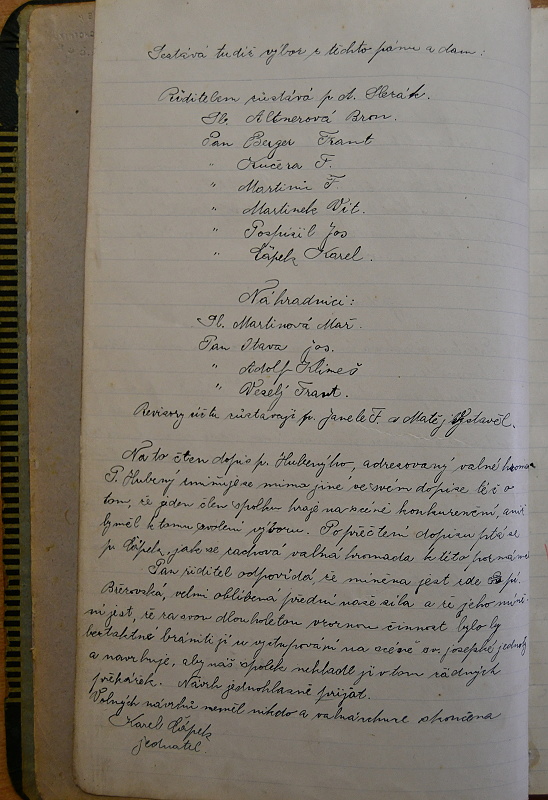 Sestává tudíž výbor z těchto pánů a dam:
Ředitelem zůstává p. A. Slezák.
Sl. Altnerová Bron.
Pan Berger Frant
" Kučera F.
" Martinic F.
" Martinek Vit.
" Pospíšil Jos
" Čápek Karel.
Náhradníci:
Sl. Martinová Mař.
Pan Stava jos.
" Adolf Klimeš
" Veselý Frant.
Revisory účtů zůstávají p. Janele F. a Matěj Vystavěl.
Na to čten dopis p. Hubeného, adresovaný valné
P. Hubený zmiňuje se mimo jiné ve svém dopise též o
tom, že jeden člen spolku hraje na scéně konkurenční, aniž
by měl k tomu svolení výboru. Po přečtení dopisu ptá se
p. Čápek, jak se zachová valná hromada k této
Pan ředitel odpovídá, že míněna jest zde pí.
velmi oblíbená přední naše síla a že jeho míně-
ní jest, že za svou dlouholetou vzornou činnost bylo by
beztaktně brániti jí u vystupování na scéně sv. josefské jednoty
a navrhuje, aby náš spolek nekladl jí v tom žádných
překážek. Návrh jednohlasně přijat.
Volných návrhů neměl nikdo a valná schůze skončena
Karel Čápek
jednatel.